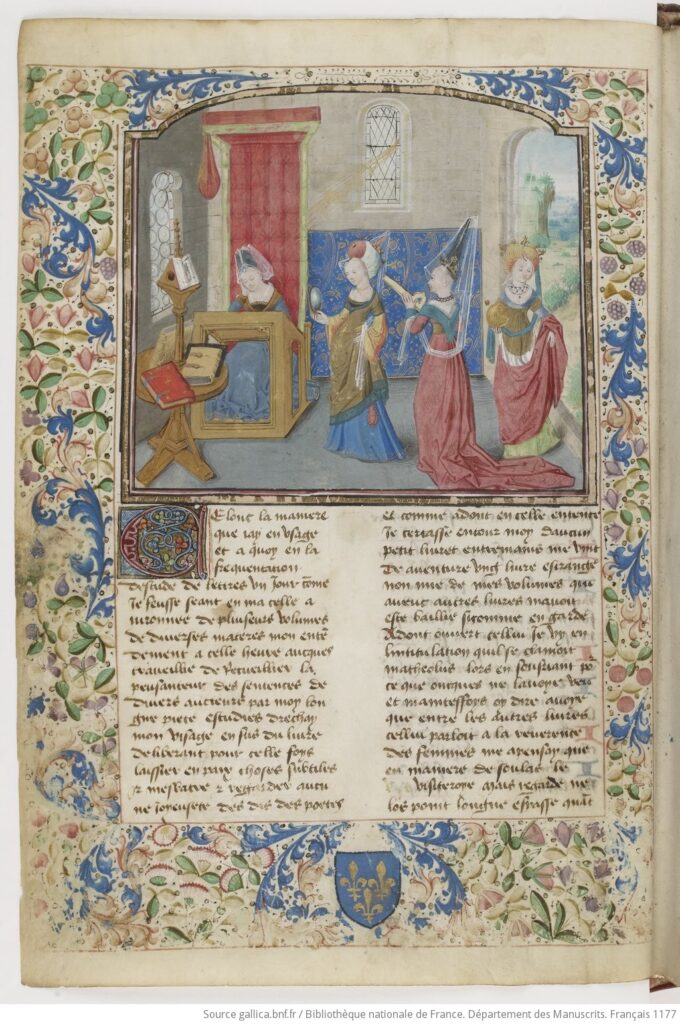 Selonc la maniere
que iay en vsage
et a quoy en la
frequentation
destude de lettres vn Jour come
Je feusse seant en ma celle a
uironnee de pluseurs volumes
de diuerses matieres mon enten
dement a celle heure aucques
trauueillie de Recueillier la
pensanteur des sentences de
diuers aucteurs par moy lon
gue piece estudies drechay
mon visage en sus du liure
deliberant pour celle foys
laissier en paix choses subtiles
regarder aucu
ne Joyeusete des dis des poetes
et comme adont en celle entente
Je cerchasse entour moy daucun
petit liuret entremains me vint
de auenture vng liure estrange
non mie de mes volumes que
auecuc autres liures mauoit
este baillie sicomme en garde
Adont ouuert cellui Je vy en
lintitulation quil se clamoit
matheolus lors en sousriant po
ce que oncques ne lauoye veu
et maintesfoys oy dire auoye
que entre les autres liures
cellui parloit a la reuerence
des femmes me apensay que
en maniere de soulas le
visiteroye mais regarde ne
los point longue espasse quat
Source gallica.bnf.fr / Bibliothèque nationale de France. Département des Manuscrits. Français 1177